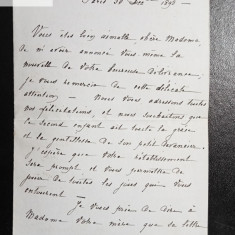 Paris 30 Xbre 189
Vous êtes bien aimable, chère Madame,
de m'avoir annoncé vous même la
nouvelle de votre heureuse délivrance,
je vous remercie de cette délicate
attention. — Nous vous adressons toutes
nos félicitations, et nous souhaitons que
le second enfant ait toute la grâce
et la gentillesse de son petit devancier.
J'espère que votre rétablissement
sera prompt et vous permettra de
jouir de toutes les joies qui vous
entourent. —
Je vous prie de dire à
Madame votre mère que sa lettre